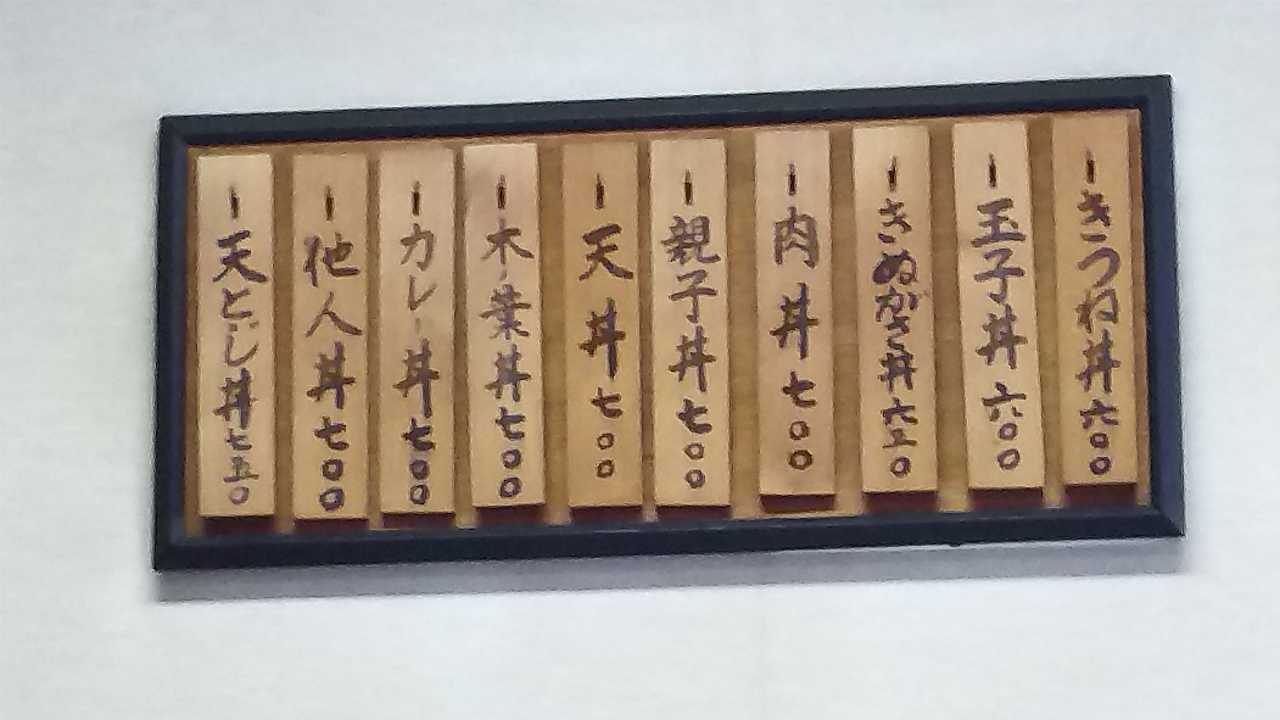 きつね丼六〇〇
玉子丼六〇〇
きぬがさ丼六五〇
肉丼七〇〇
親子丼七〇〇
天丼七〇〇
木ノ葉丼七〇〇
カレー丼七〇〇
他人丼七〇〇
天とじ丼七五〇